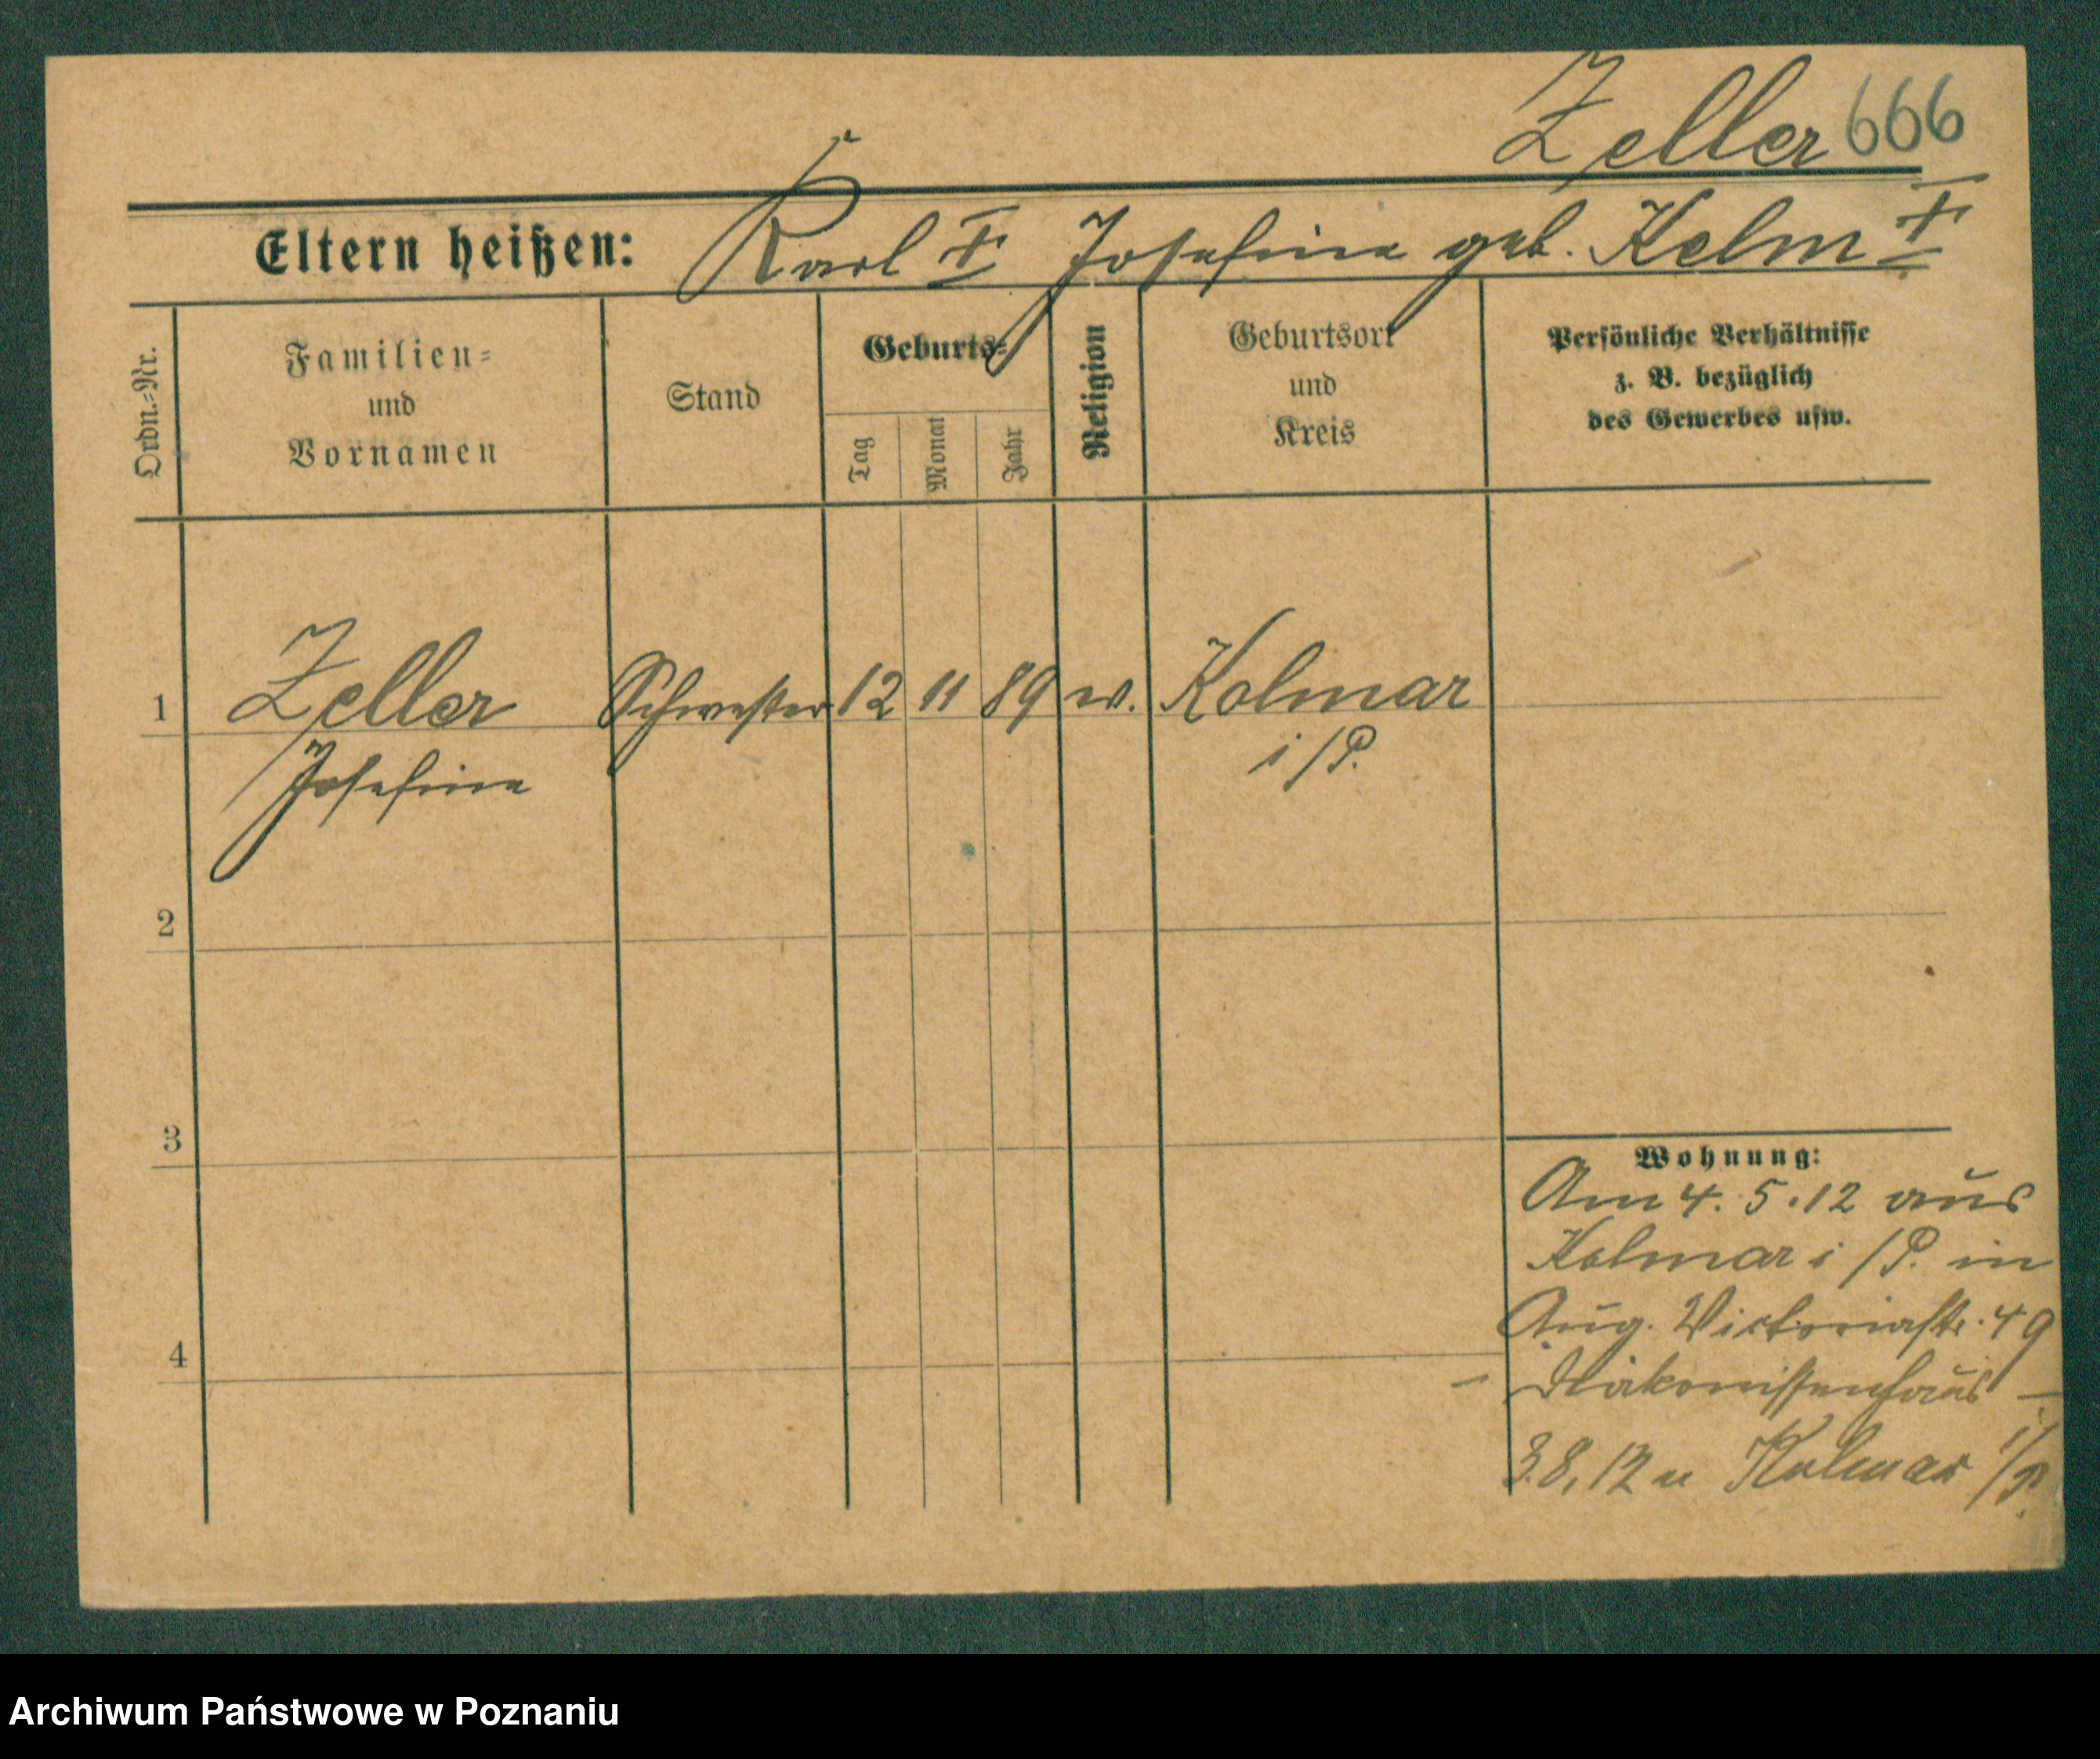 Zeller 666
Eltern heißen: Karl † Josefine geb. Kelm †
Ordn.-Nr.
Familien-
und
Vornamen
Stand
Geburts-
Tag
Monat
Jahr
Religion
Geburtsort
und
Kreis
Persönliche Verhältnisse
z. B. bezüglich
des Gewerbes usw.
1 Zeller Schwester 12 11 89 ev. Kolmar
Josefine i/P.
2
3
4
Wohnung:
Am 4. 5. 12 aus
Kolmar i/P. in
Aug. Victoriastr. 49
- Diakonissenhaus -
3.8.12 n Kolmar i/P.
Archiwum Państwowe w Poznaniu